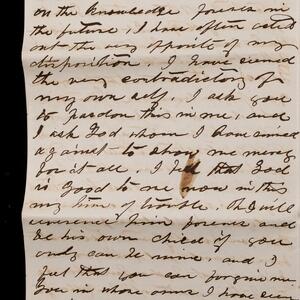 on the knowledge forever in
the future. I have often acted
out the very oposite of my
disposition. I have seemed
the very contradictory of
my own self. I ask you
to pardon this in me, and
I ask God whom I have sinned
against to show me mercy
for it all. I feel that God
is good to me now in this
my time of trouble. Oh I will
reverence him forever and
be his own child if you
only can be mine. and I
feel that you can forgive me
Ever in whose arms I have